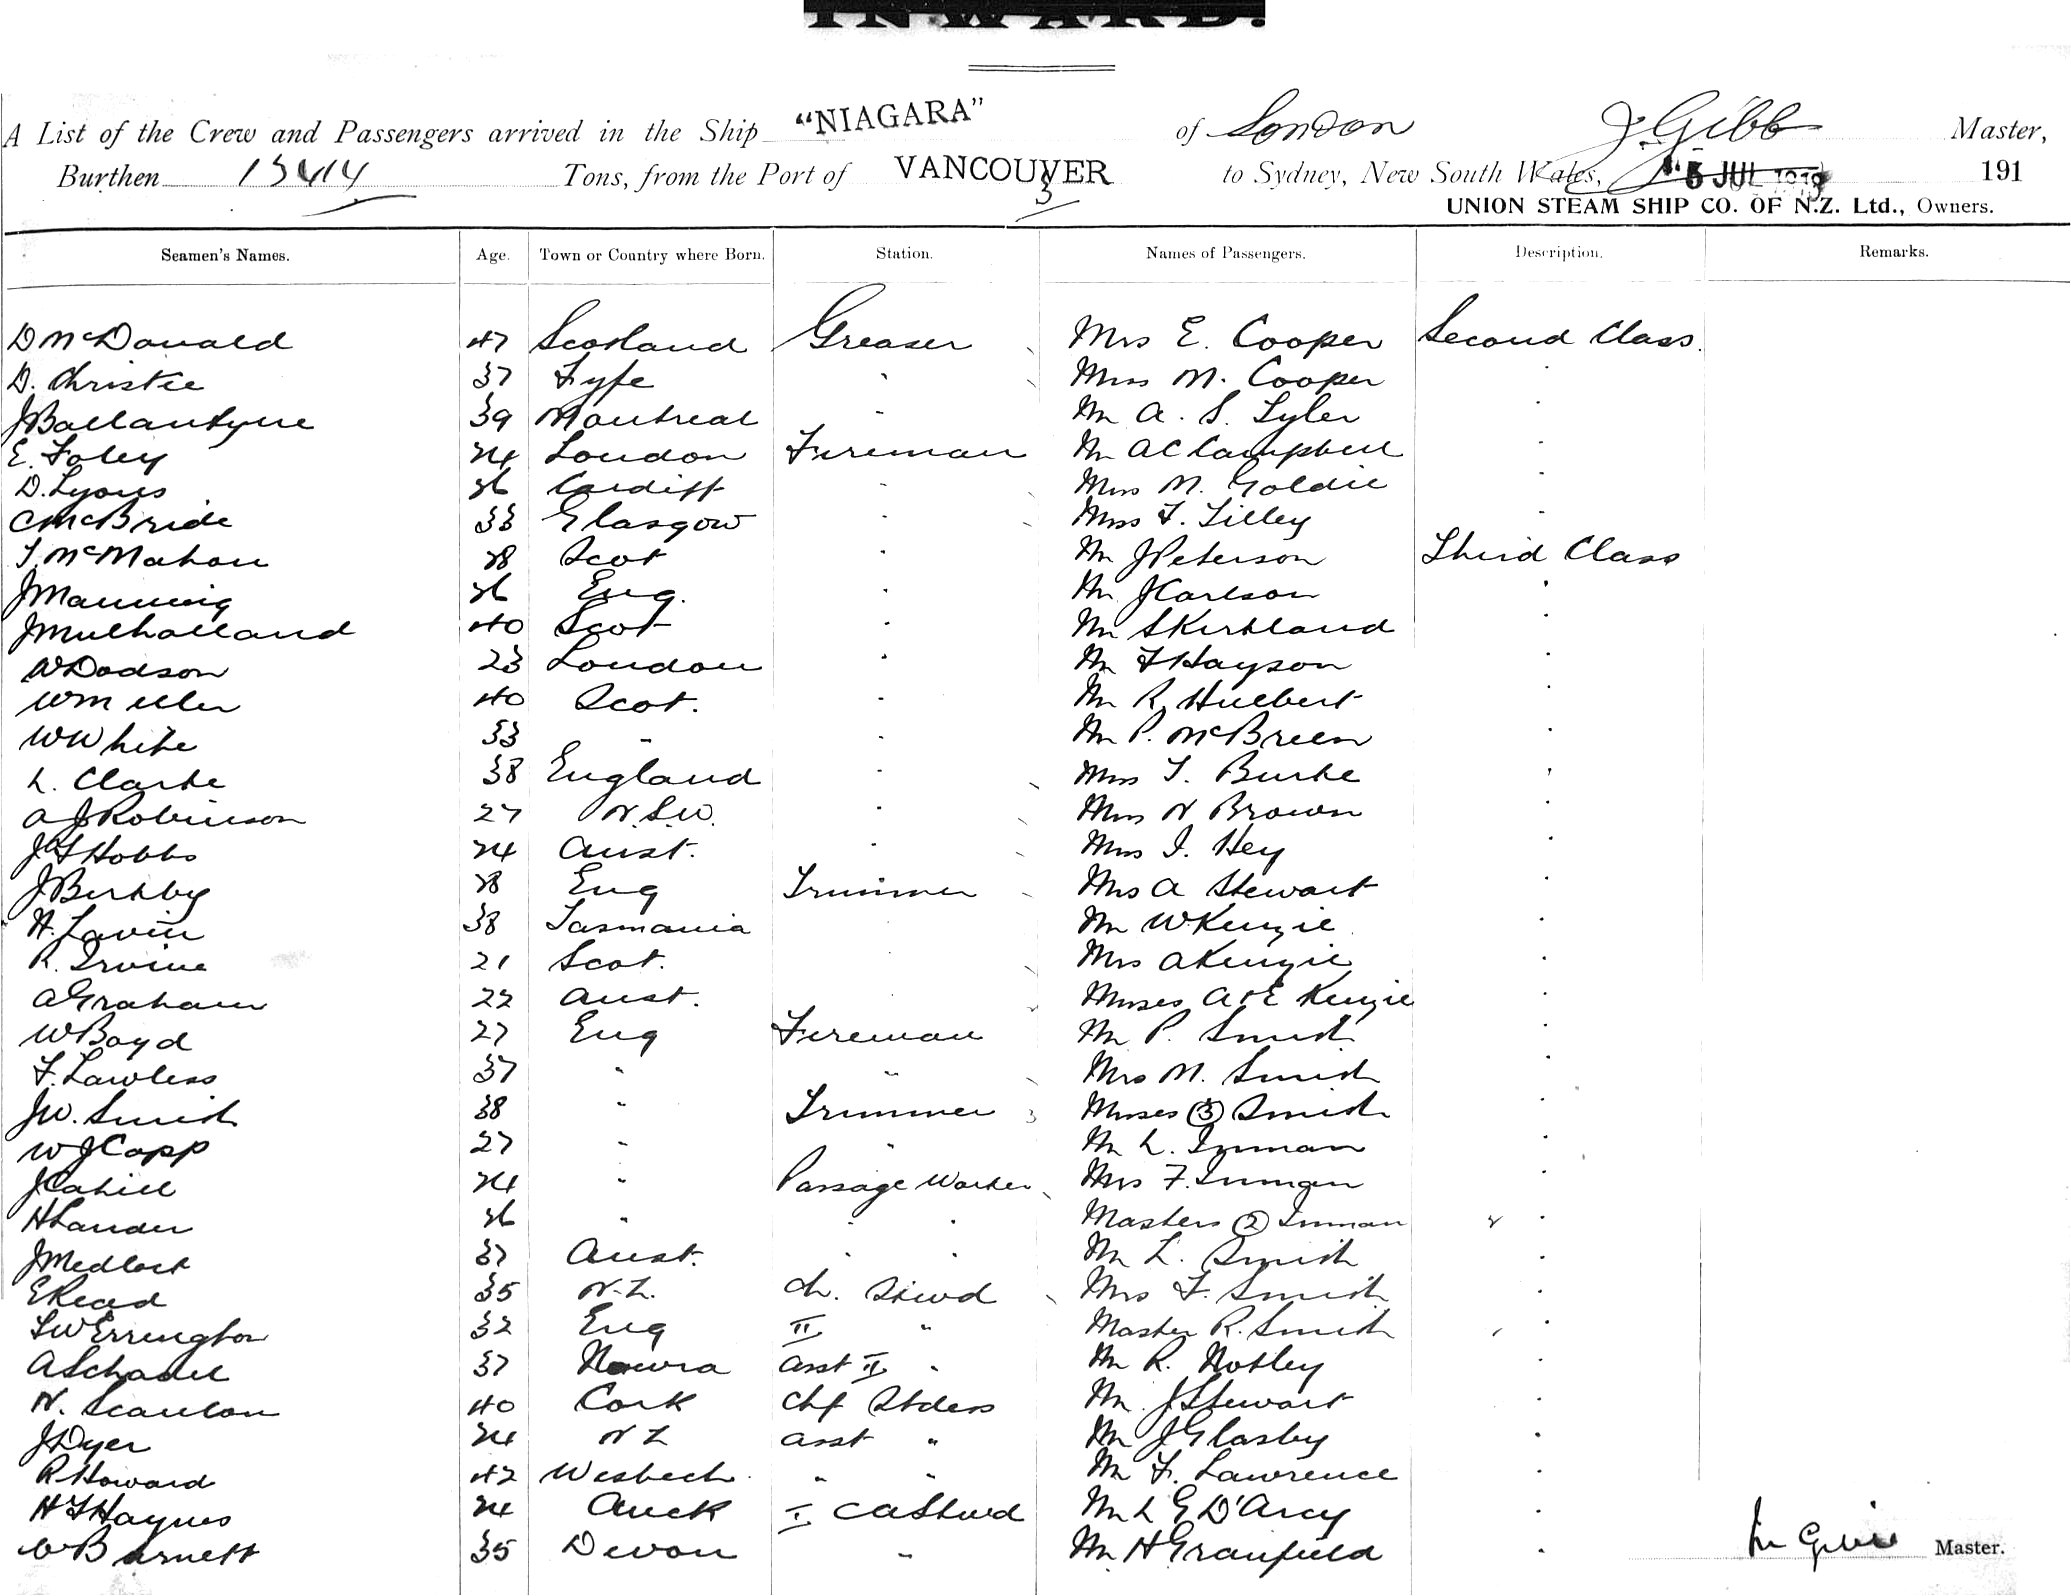 INWARD.
A List of the Crew and Passengers arrived in the Ship "NIAGARA" of London J. Gibb Master,
Burthen 13414 Tons, from the Port of VANCOUVER to Sydney, New South Wales, 5 JUL 1919 191
3
UNION STEAM SHIP CO. OF N.Z. Ltd., Owners.
Seamen's Names. Age. Town or Country where Born. Station. Names of Passengers. Description. Remarks.
D McDonald 47 Scotland Greaser Mrs E. Cooper Second Class.
D. Christie 37 Fyfe " Miss M. Cooper "
J Ballantyne 39 Montreal " Mr A. S. Tyler "
E. Foley 24 London Fireman Mr A C Campbell "
D. Lyons 26 Cardiff " Miss M. Goldie "
C McBride 33 Glasgow " Miss F. Tilley "
T. McMahon 28 Scot " Mr J Peterson Third Class
J Manning 26 Eng. " Mr J Carlson "
J Mulholland 40 Scot " Mr S Kirkland "
W Dodson 23 London " Mr F Hayson "
W Miller 40 Scot. " Mr R Hulbert "
W White 33 " " Mr P. McBreen "
L. Clarke 38 England " Miss T. Burke "
A J Robinson 27 N.S.W. " Miss N Brown "
J F Hobbs 24 Aust. " Miss I. Hey "
J Birkby 28 Eng Trimmer Mrs A Stewart "
H. Lavin 38 Tasmania Mr W Kenzie "
R. Irvine 21 Scot. Mrs A Kenzie "
A Graham 22 Aust. Misses A & E Kenzie "
W Boyd 27 Eng Fireman Mr P. Smith "
F. Lawless 37 " " Mrs M. Smith "
J W. Smith 38 " Trimmer 3 Misses (3) Smith "
W J Copp 27 " " Mr L. Inman "
J Cahill 24 " Passage Worker Mrs F. Inman "
H Lander 26 " " " Masters (2) Inman "
J Medlock 37 Aust. " " Mr L. Smith "
E Read 35 N.Z. Ch. Stewd Mrs F. Smith "
F W Errington 32 Eng II " Master R. Smith "
A Schadel 37 Nowra Asst II " Mr R. Notley "
N. Scanlon 40 Cork Chf Stdess Mr J Stewart "
J Dyer 24 N Z Asst " Mr J Glasby "
R Howard 42 Wisbech " " Mr F. Lawrence "
H F Haynes 24 Auck I CA Stwd Mr L G D'Arcy "
Barnett 35 Devon " Mr H Granfield "
Master.